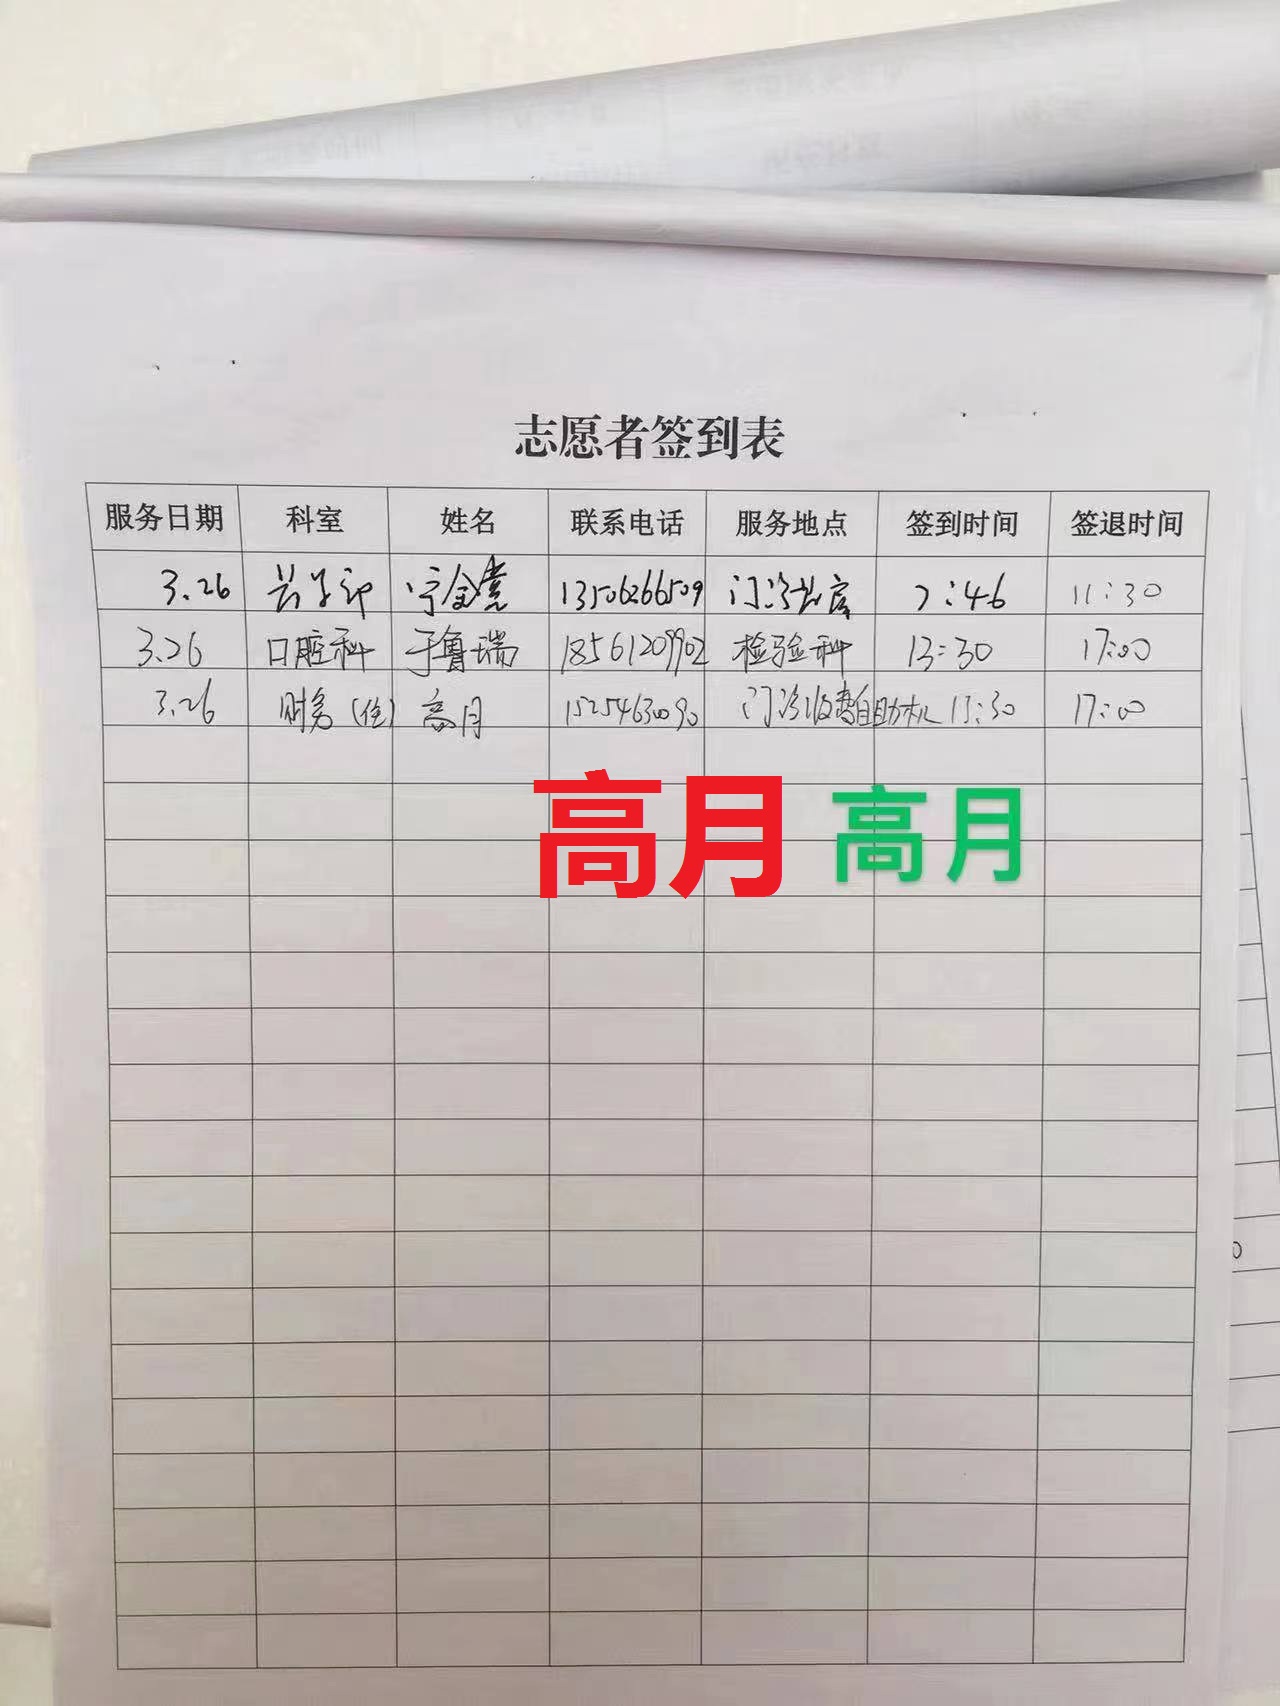 志愿者签到表
服务日期 科室 姓名 联系电话 服务地点 签到时间 签退时间
3.26 药学部 宁金亮 13506266509 门诊药房 7:46 11:30
3.26 口腔科 于鲁瑞 18561209902 检验科 13:30 17:00
3.26 财务(住) 高月 15254630090 门诊收费自助机 13:30 17:00
高月 高月